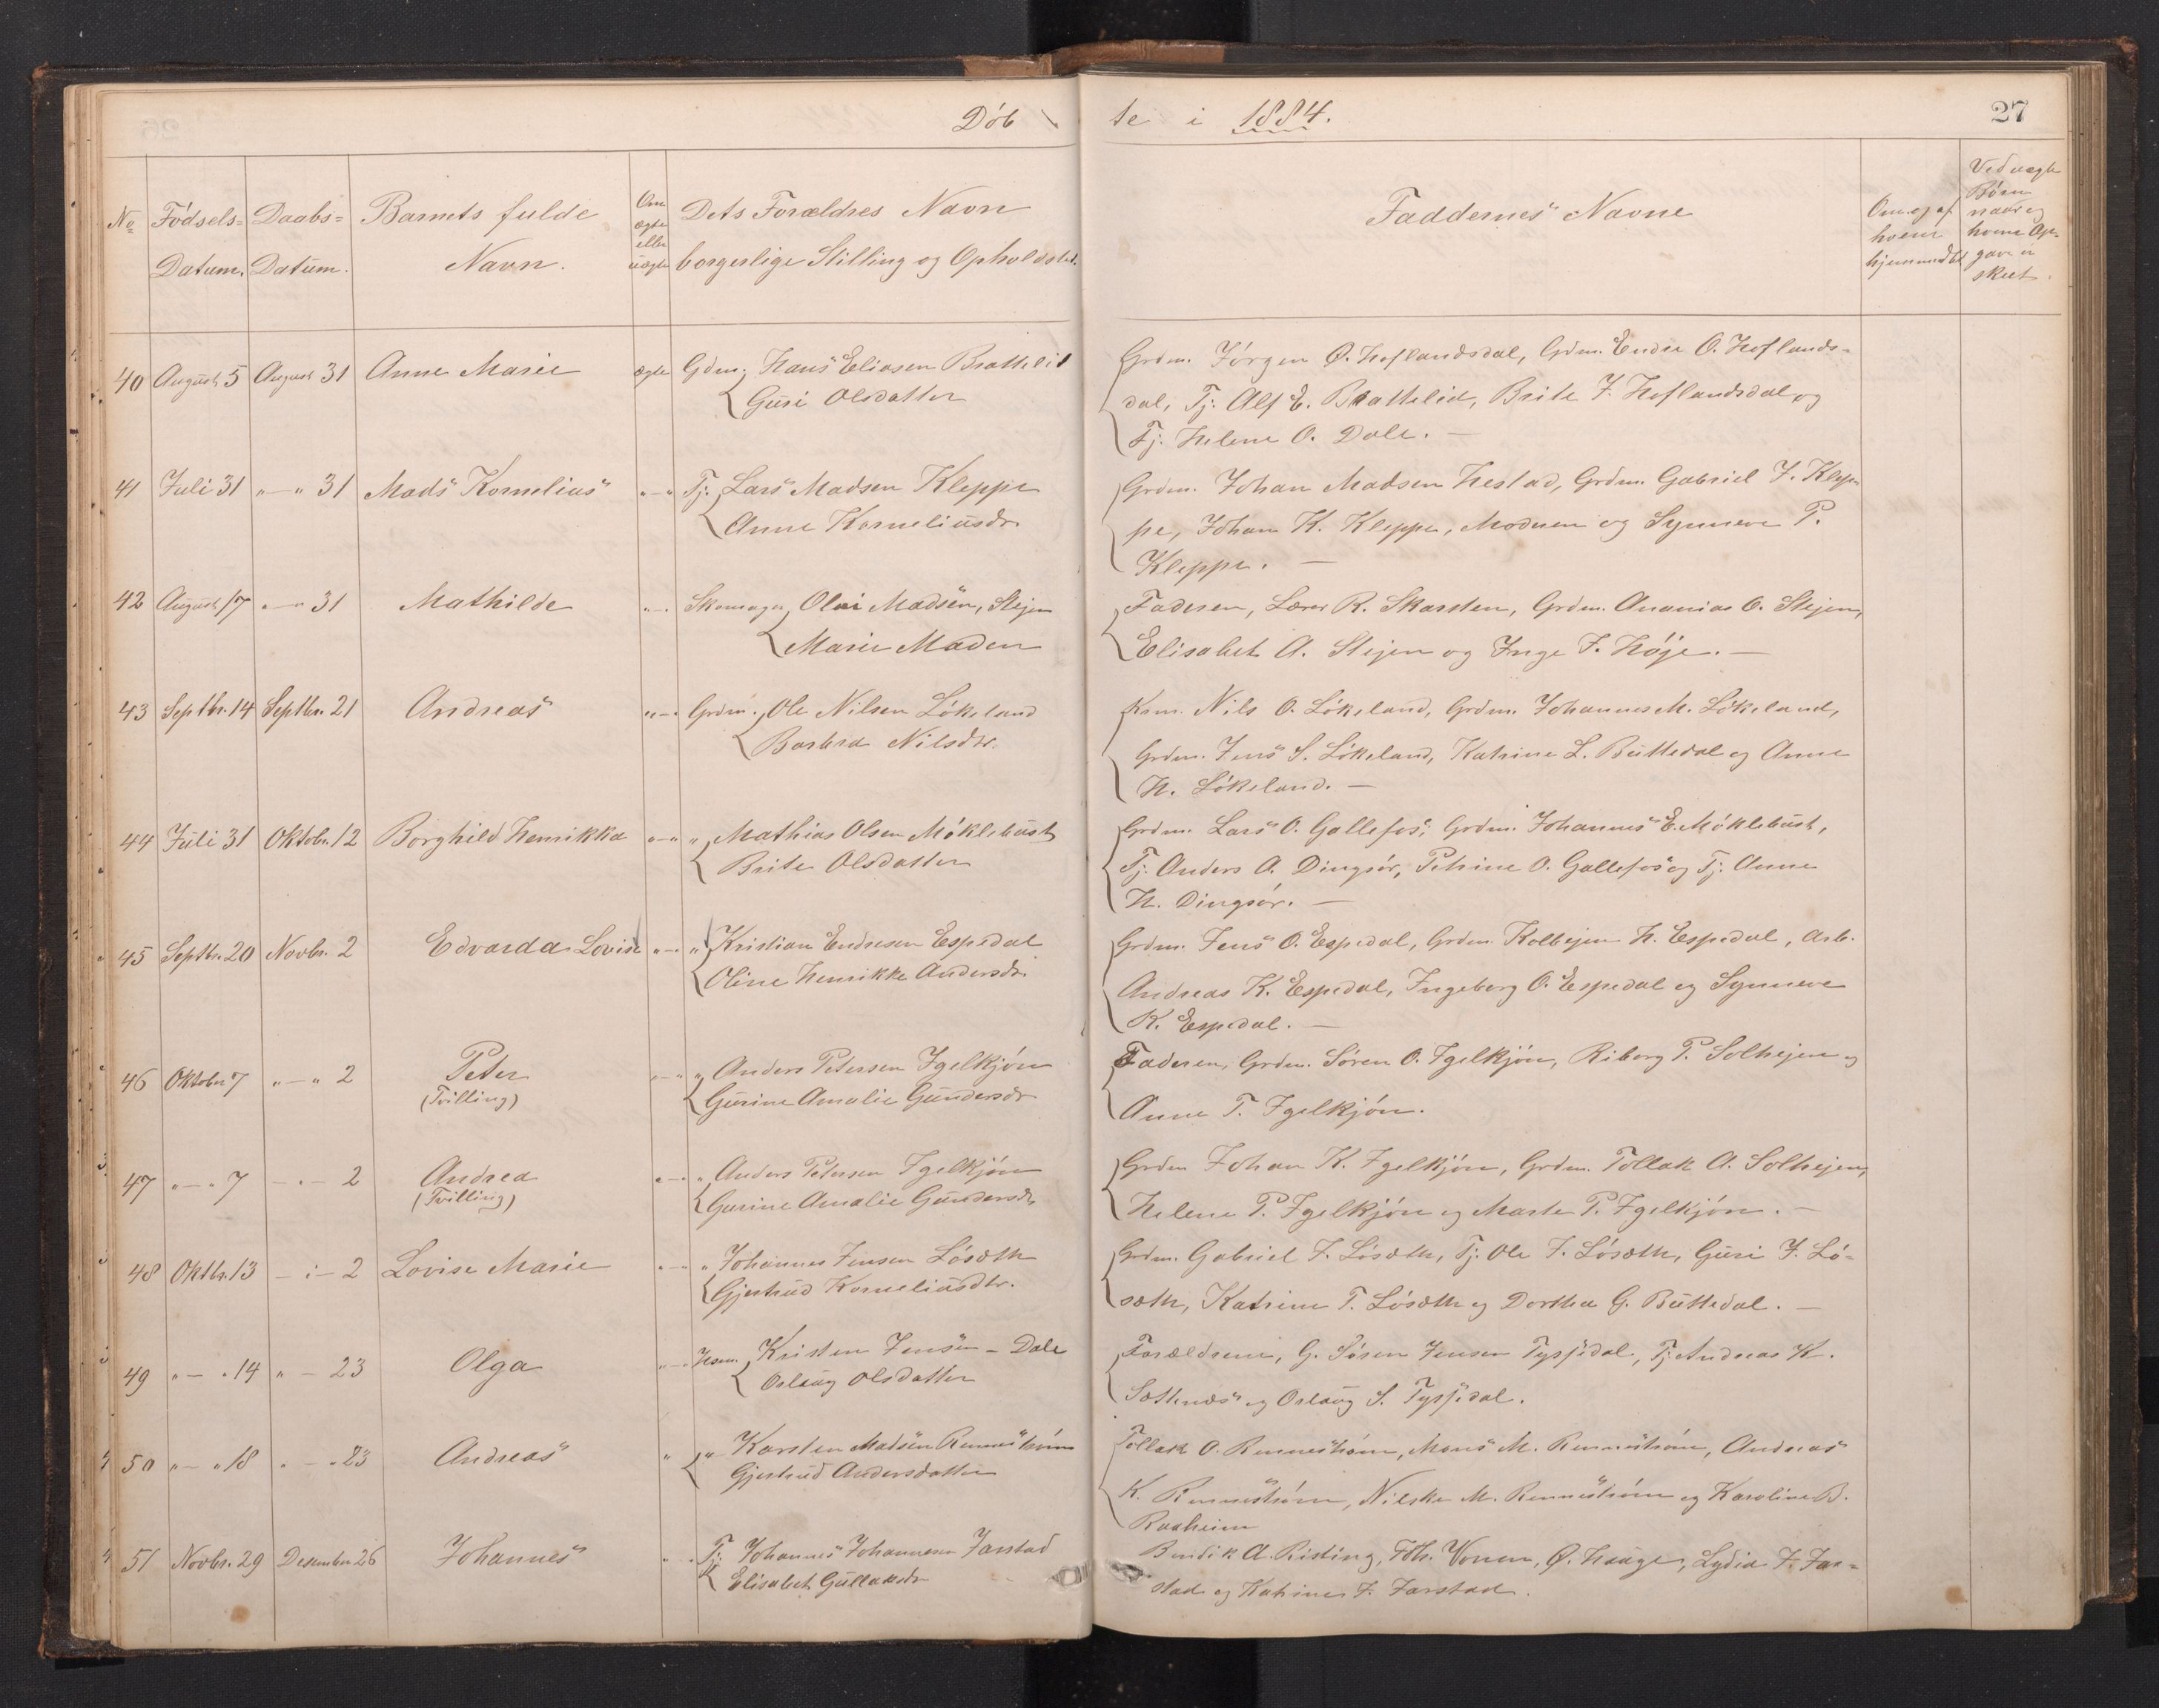 Døb
te i 1884. 27
No Fødsels= Datum. Daabs= Datum. Barnets fulde Navn. Om ægte eller uægte Dets Forældres Navn borgerlige Stilling og Opholdsted. Faddernes Navne Om og af hvem hjemmedøbt Ved uægte Børn naar og hvem Op= gave er skeet.
40 August 5 August 31 Anne Marie ægte Gdm. Hans Eliasen Brattelid
Guri Olsdatter
Grdm. Jørgen O. Hoflandsdal, Grdm. Endre O. Hoflands=
dal, Tj. Alf E. Brattelid, Brite J. Hoflandsdal og
Tj. Helene O. Dale. —
41 Juli 31 "—" 31 Mads Kornelius "—" Tj. Lars Madsen Kleppe
Anne Korneliusdr.
Grdm. Johan Madsen Hestad, Grdm. Gabriel J. Klep=
pe, Johan K. Kleppe, Moderen og Synneve P.
Kleppe. —
42 August 17 "—" 31 Mathilde "—" Skomager Olai Madsen, Stejen
Marie Madsen
Faderen, Lærer R. Skarsten, Grdm. Ananias O. Stejen,
Elisabet A. Stejen og Inge J. Høje. —
43 Septbr. 14 Septbr. 21 Andreas "—" Grdm. Ole Nilsen Løkeland
Barbra Nilsdtr.
Krm. Nils O. Løkeland, Grdm. Johannes M. Løkeland,
Grdm. Jens S. Løkeland, Katrine L. Buttedal og Anne
H. Løkeland. —
44 Juli 31 Oktobr. 12 Borghild Henrikka "—" " Mathias Olsen Møklebust
Brite Olsdatter
Grdm. Lars O. Gallefos, Grdm. Johannes E. Møklebust,
Tj. Anders A. Dingsør, Petrine O. Gallefos og Tj. Anne
H. Dingsør. —
45 Septbr. 20 Novbr. 2 Edvarda Lovise "—" " Kristian Endresen Espedal
Oline Henrikke Andersdr.
Grdm. Jens O. Espedal, Grdm. Kolbejen H. Espedal, Arb.
Andreas K. Espedal, Ingeborg O. Espedal og Synneve
K. Espedal. —
46 Oktober 7 "—" 2 Peter "—" " Anders Petersen Igelkjøn
(Tvilling) Gurine Amalie Gundersdr
Faderen, Grdm. Søren O. Igelkjøn, Riborg P. Solhejen og
Anne T. Igelkjøn.
47 "—" 7 —"— 2 Andrea "—" " Anders Petersen Igelkjøn
(Tvilling) Gurine Amalie Gundersdr
Grdm Johan K. Igelkjøn, Grdm. Tollak A. Solhejen,
Helene P. Igelkjøn og Marte P. Igelkjøn. —
48 Oktbr. 13 —"— 2 Lovise Marie "—" " Johannes Jensen Løsæth
Gjertrud Korneliusdtr.
Grdm. Gabriel J. Løsæth, Tj. Ole J. Løsæth, Guri J. Lø=
sæth, Katrine T. Løsæth og Dorthea G. Buttedal. —
49 "—" 14 "— 23 Olga "—" Hsm. Kristen Jensen – Dale
Oslaug Olsdatter
Forældrene, G. Søren Jensen Tyssedal, Tj. Andreas K.
Sættenæs og Oslaug S. Tyssedal.
50 "—" 18 "—" 23 Andreas " " Karsten Madsen Rennestrøm
Gjertrud Andersdatter
Tollak O. Rennestrøm, Mons M. Rennestrøm, Andreas
K. Rennestrøm, Nilske M. Rennestrøm og Karoline B.
Raaheim
51 Novbr. 29 Desember 26 Johannes " Tj. Johannes Johannesen Jarstad
Elisabet Gullaksdr
Bendik A. Risting, Joh. Vonen, Ø. Hauge, Lydia J. Jar=
stad og Katrine J. Jarstad.